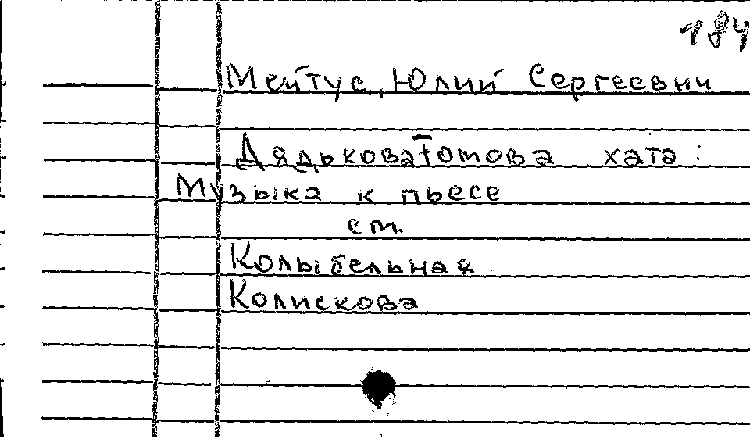 184
Мейтус, Юлий Сергеевич
Дядьковатомова хата:
Музыка к пьесе
см.
Колыбельная
Колискова